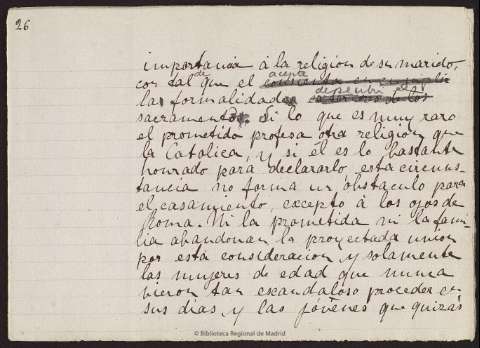 26
importancia á la religion de su marido,
con tal de que el acepte consienta en cumplir
las formalidades de recibir el
sacramento. Si lo que es muy raro
el prometido profesa otra religion que
la Catolica, y si él es lo bastante
honrado para declararlo, esta circuns-
tancia no forma un obstaculo para
el casamiento, excepto á los ojos de
Roma. Ni la prometida ni la fami-
lia abandonan la proyectada union
por esta consideracion, y solamente
las mujeres de edad que nunca
vieron tan escandaloso proceder en
sus dias, y las jóvenes que quizás
© Biblioteca Regional de Madrid